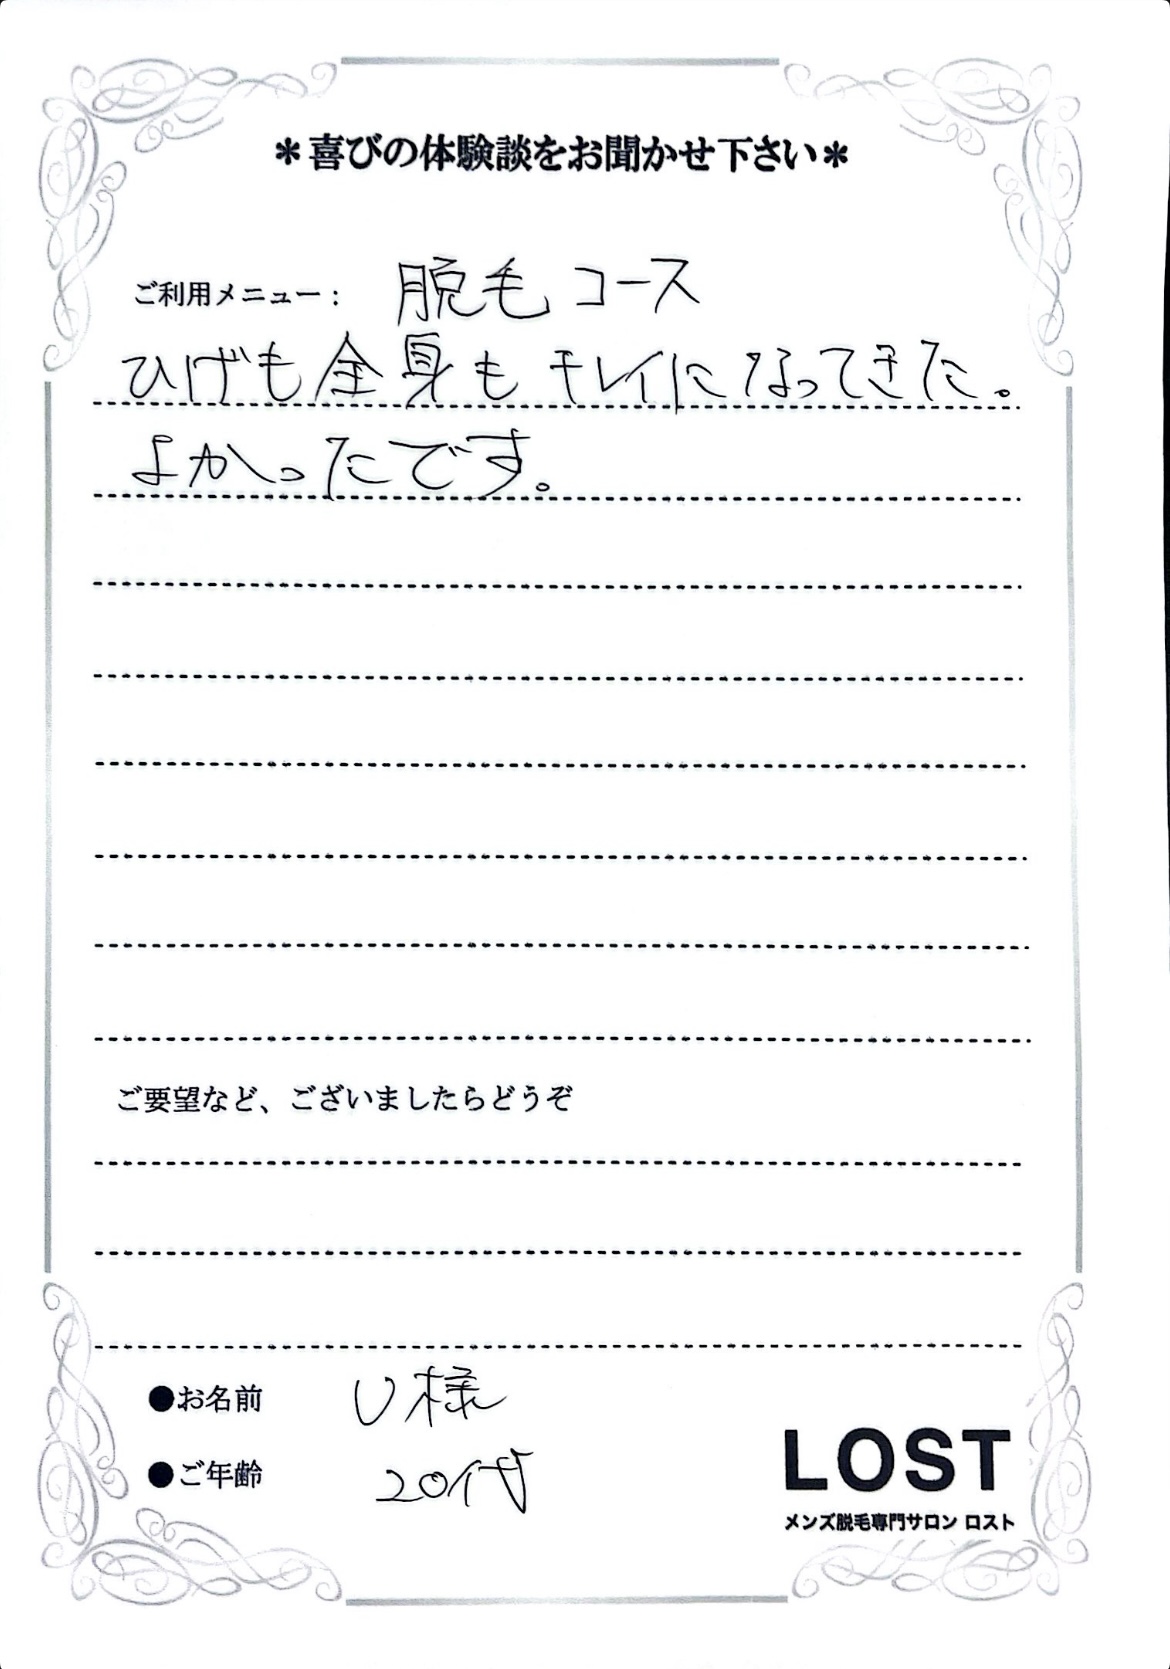 ＊喜びの体験談をお聞かせ下さい＊
ご利用メニュー： 脱毛コース
ひげも全身もキレイになってきた。
よかったです。
ご要望など、ございましたらどうぞ
●お名前 U様
●ご年齢 20代
LOST
メンズ脱毛専門サロン ロスト